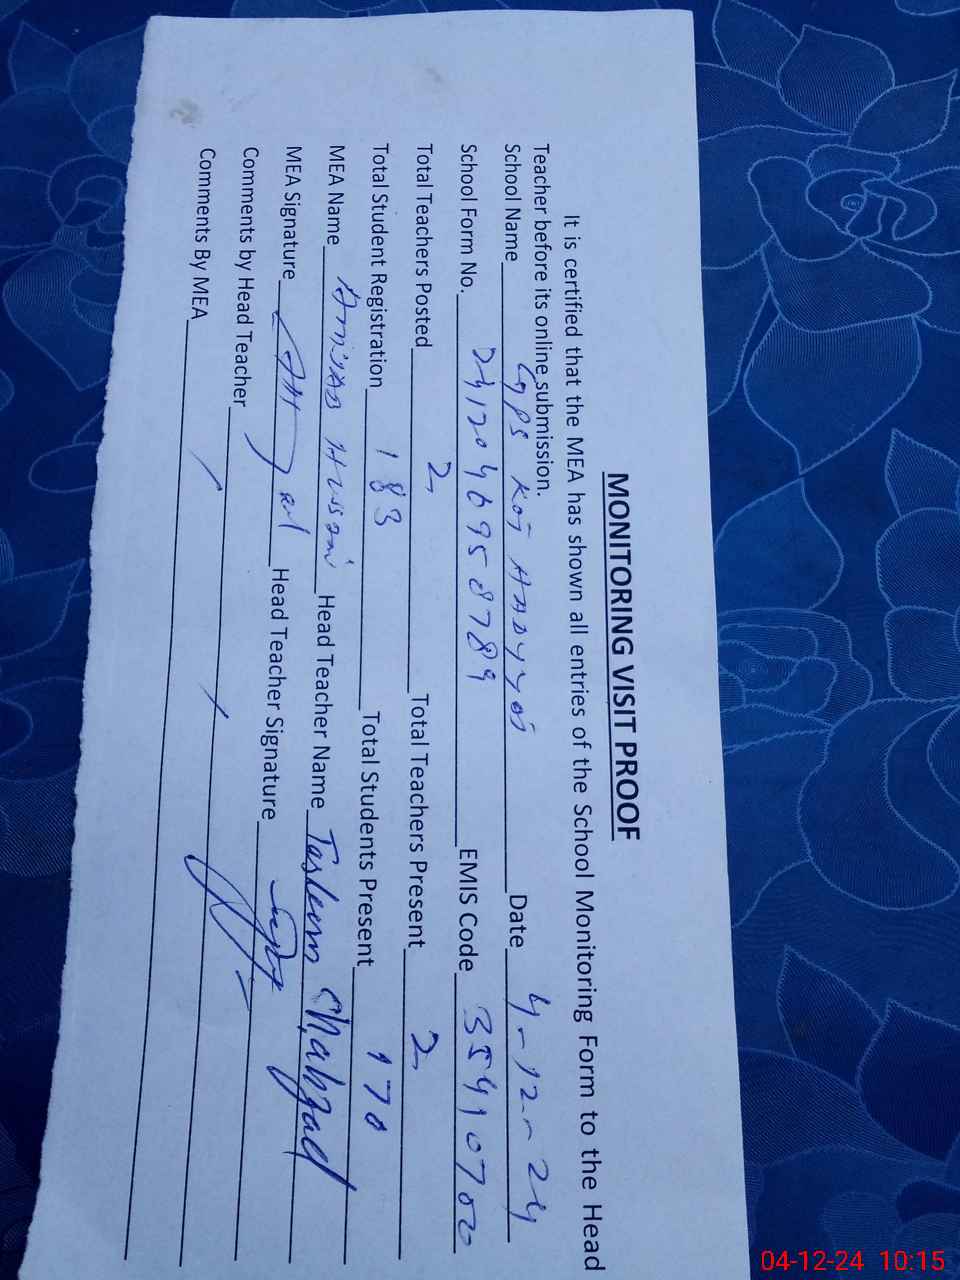 MONITORING VISIT PROOF
It is certified that the MEA has shown all entries of the School Monitoring Form to the Head
Teacher before its online submission.
School Name GPS Kot Date 4-12-24
School Form No. EMIS Code 35410702
Total Teachers Posted 2 Total Teachers Present 2
Total Student Registration 183 Total Students Present 170
MEA Name Amjad Head Teacher Name Tasleem Shahzad
MEA Signature Head Teacher Signature
Comments by Head Teacher
Comments By MEA
04-12-24 10:15